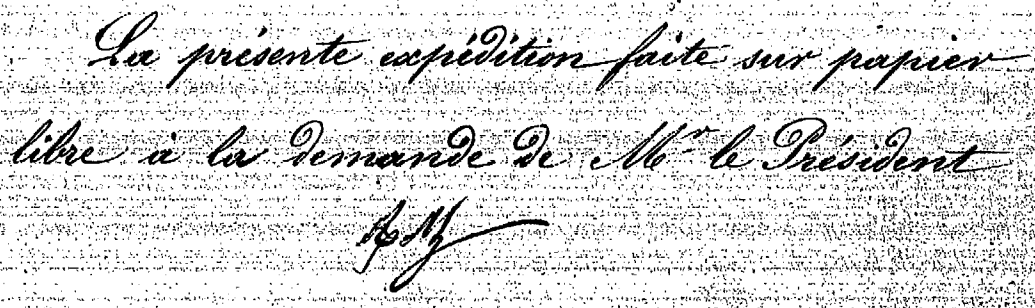 La présente expédition faite sur papier
libre à la demande de Mr le Président